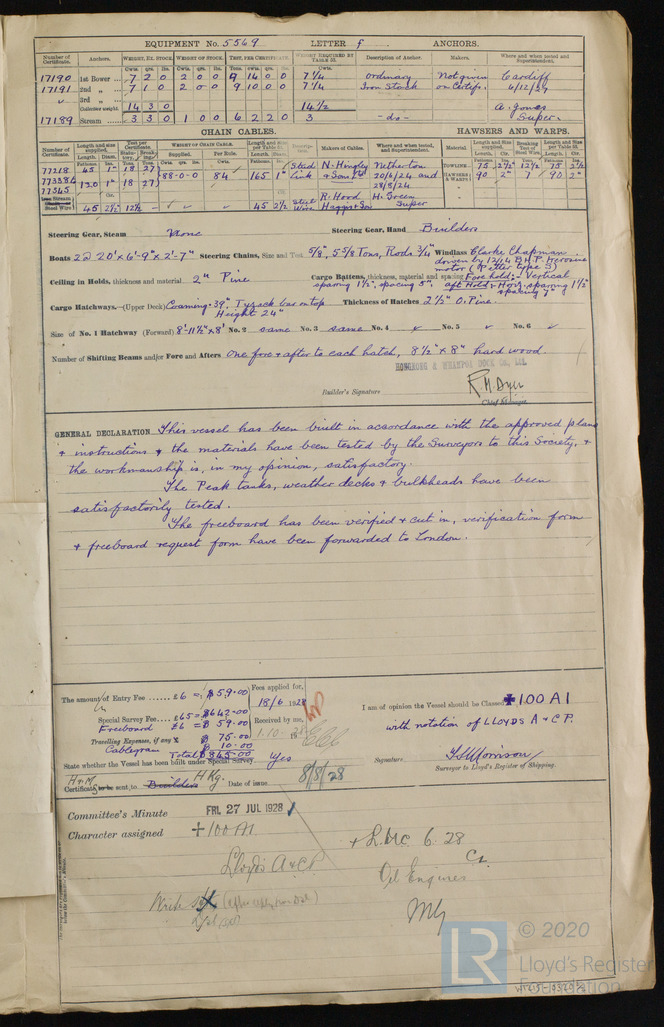 EQUIPMENT No. 5569 LETTER f ANCHORS.
Number of Certificate. Anchors. WEIGHT, EX. STOCK. WEIGHT OF STOCK. TEST, PER CERTIFICATE. WEIGHT REQUIRED BY TABLE 31. Description of Anchor. Makers. Where and when tested and Superintendent.
Cwts. qrs. lbs. Cwts. qrs. lbs. Cwts.
17190 1st Bower 7 2 0 2 0 0 9 14 0 0 7 1/4 ordinary Not given Cardiff
17191 2nd „ 7 1 0 2 0 0 9 10 0 0 7 1/4 Iron Stock on Certifs.
3rd „
Collective weight. 14 3 0 14 1/2 A. Jonas
17189 Stream 3 3 0 1 0 0 6 2 2 0 3 -do- Super.
CHAIN CABLES. HAWSERS AND WARPS.
Number of Certificate. Length and size supplied. Test per Certificate. WEIGHT OF CHAIN CABLE. Length and size per Table 31. Makers of Cables. Where and when tested, and Superintendent. Material Length and Size supplied. Breaking Test of Steel Wire. Length and Size per Table 31.
Length. Diam. Supplied. Per Rule. Length. Diam. Length. Cir. Length. Cir.
77218 45 1" 18 27 88-0-0 84 165 1" Stud Link N. Hingley & Sons Ltd Netherton TOWLINE 75 2 1/2" 12 1/2 75 2 1/2
773384 130 1" 18 27 20/6/24 and HAWSERS & WARPS 90 2" 7 90 2"
77345 28/8/24
Steel Wire 45 2 1/2" 12 1/2 - 45 2 1/2 Steel Wire R. Hood Haggie & Son H. Green Super
Steering Gear, Steam None Steering Gear, Hand Builders
Boats 2 @ 20' x 6'-9" x 2'-7" Steering Chains, Size and Test 5/8", 5 5/8 Tons, Rods 3/4" Windlass Clarke Chapman
driven by 12/14 B.H.P. Kerosine
motor (Petter type S)
Ceiling in Holds, thickness and material 2" Pine Cargo Battens, thickness, material and spacing Fore hold:- Vertical
sparing 1 1/2", spacing 5". aft Hold:- Horz. sparing 1 1/2"
spacing 7"
Cargo Hatchways.—(Upper Deck) Coaming 39" Tyzack bar on top Thickness of Hatches 2 1/2" O. Pine.
Height 24"
Size of No. 1 Hatchway (Forward) 8'-11 1/2" x 8' No. 2 same No. 3 same No. 4 No. 5 No. 6
Number of Shifting Beams and/or Fore and Afters One fore & after to each hatch, 8 1/2" x 8" hard wood.
HONGKONG & WHAMPOA DOCK CO., LD.
Builder's Signature R.M. Dyer
Chief Manager
GENERAL DECLARATION This vessel has been built in accordance with the approved plans
& instructions & the materials have been tested by the Surveyors to this Society, &
the workmanship is, in my opinion, satisfactory.
The Peak tanks, weather decks & bulkheads have been
satisfactorily tested.
The freeboard has been verified & cut in, verification form
& freeboard request form have been forwarded to London.
The amount of Entry Fee £6 = $59.00 Fees applied for,
18/6 1928
Special Survey Fee £65 = $642.00
Freeboard £6 = $59.00 Received by me,
Travelling Expenses, if any $ 75.00 1.10.28
Cablegram $ 10.00
Total $845.00
I am of opinion the Vessel should be Classed ✠100 A1
with notation of LLOYDS A & C P.
State whether the Vessel has been built under Special Survey. Yes
Signature
Surveyor to Lloyd's Register of Shipping.
Certificate to be sent to Builders H Kg. Date of issue 8/8/28
Committee's Minute FRI. 27 JUL 1928
Character assigned +100A1
Lloyds A & C P.
+ L.M.C. 6.28
Oil Engines
© 2020
LR
Lloyd's Register
Foundation